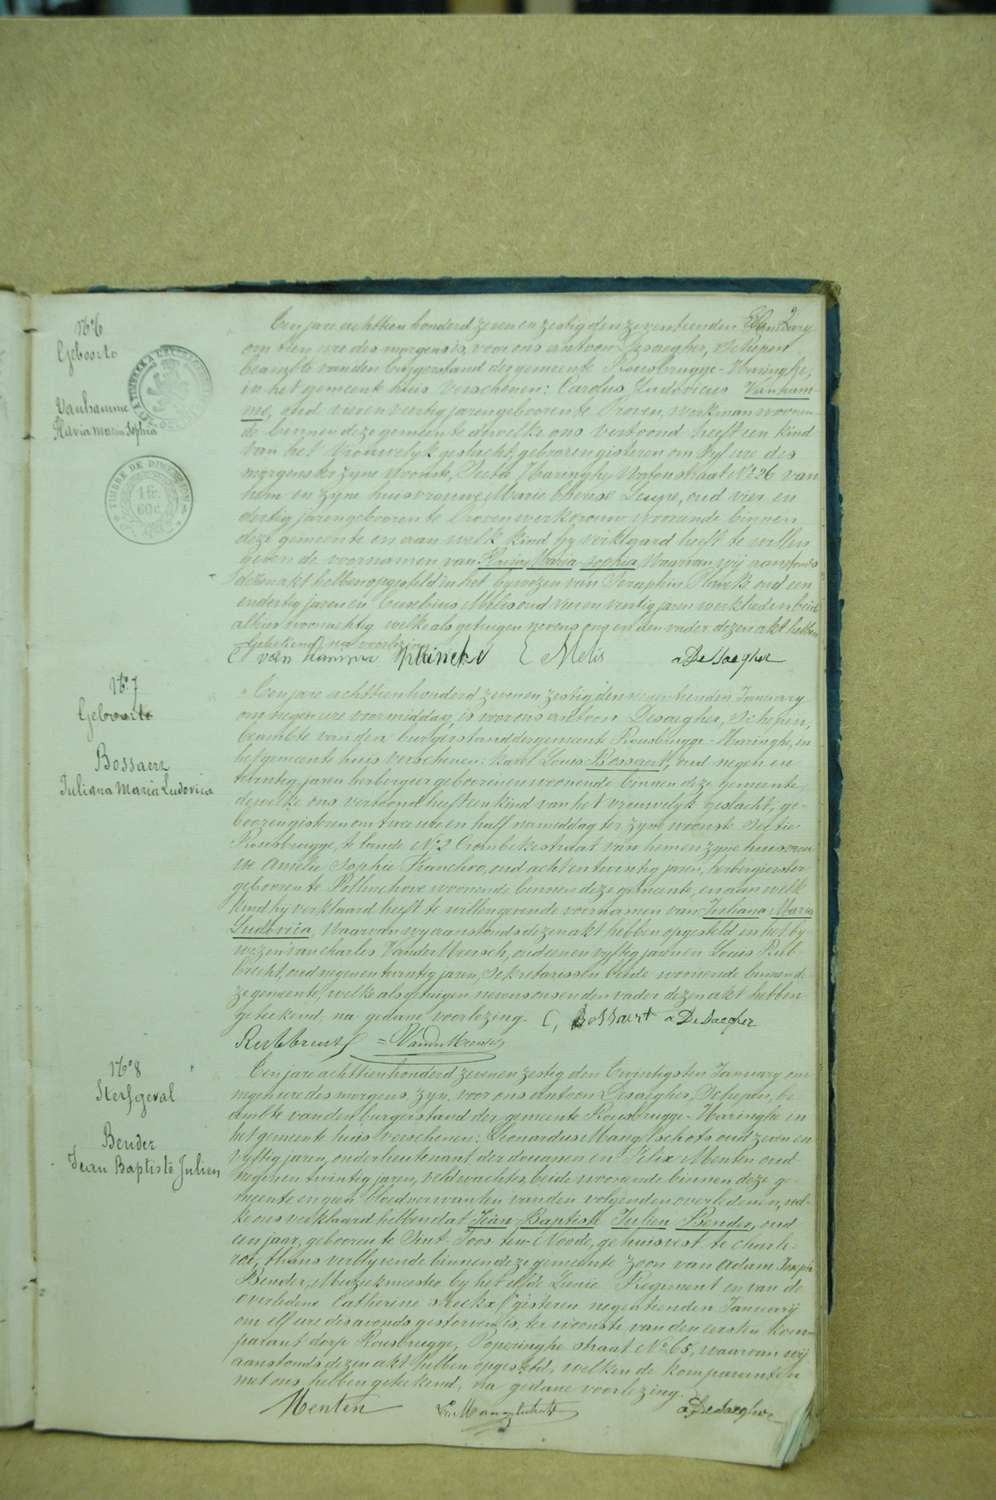 2
N° 6
Geboorte
Vanhamme
Flavia Maria Sophia
TIMBRE DE DIMENSION
1 fr.
60 c.
Een jare achttien honderd zeven en zestig den zeventienden January
om tien ure des morgens is, voor ons antoon Desaegher, Schepen
beamte van den burgerstand der gemeente Rousbrugge-Haringhe,
in het gemeente huis verschenen: Carolus Ludovicus Vanham-
me, oud vier en veertig jaren geboren te Proven, werkman woonen-
de binnen deze gemeente dewelke ons vertoond heeft een kind
van het vrouwelyk geslacht, geboren gisteren om vyf ure des
morgens ter zyne woonste, Sectie Haringhe, straat N° 26 van
hem en zyne huisvrouwe Marie Therese, oud vier en
dertig jaren geboren te Proven werkvrouw woonende binnen
deze gemeente en aan welk kind hy verklaard heeft te willen
geven de voornamen van Maria Sophia Waarvan wy aanstonds
dezen akt hebben opgesteld in het bywezen van Seraphin oud een
en dertig jaren en Eusebius Melis oud vier en veertig jaren werklieden beide
alhier woonachtig welke als getuigen nevens ons en den vader dezen akt hebben
geteekend na voorlezing
C van hamme E Melis a DeSaegher
N° 7
Geboorte
Bossaert
Juliana Maria Ludovica
Een jare achttien honderd zeven en zestig den negentienden January
om negen ure voormiddag, is voor ons antoon Desaegher, Schepen,
beambte van den burgerstand der gemeente Rousbrugge-Haringhe, in
het gemeente huis verschenen: Karel Louis Bossaert, oud negen en
twintig jaren herbergier geboren en woonende binnen deze gemeente,
dewelke ons vertoond heeft een kind van het vrouwelyk geslacht, ge-
boren gisteren om twee ure en half namiddag ter zyne woonste Sectie
Rousbrugge, te lande N° 2 Crombekestraat van hem en zyne huisvrou-
we Amelie Sophie Franchoo, oud acht en twintig jaren, herbergierster
geboren te Pollinchove woonende binnen deze gemeente, en aan welk
kind hy verklaard heeft te willen geven de voornamen van Juliana Maria
Ludovica, Waarvan wy aanstonds dezen akt hebben opgesteld in het by-
wezen van Charles VanderMeersch, oud een en vyftig jaren en Louis Rub-
brecht, oud negen en twintig jaren, Sekretarissen beide woonende binnen de-
ze gemeente, welke als getuigen nevens ons en den vader dezen akt hebben
geteekend, na gedane voorlezing. C, Bossaert a DeSaegher
Rubbrecht VanderMeersch
N° 8
Sterfgeval
Bender
Jean Baptiste Julien
Een jare achttien honderd zeven en zestig den twintigsten January om
negen ure des morgens, zyn, voor ons antoon Desaegher, Schepen, be-
ambte van den burgerstand der gemeente Rousbrugge-Haringhe in
het gemeente huis verschenen: Leonardus Mangelschots oud zeven en
vyftig jaren, onderlieutenant der douanen en Felix Menten oud
negen en twintig jaren, veldwachter, beide woonende binnen deze ge-
meente en geen bloedverwanten van den volgenden overledenen, wel-
ke ons verklaard hebben dat Jean Baptiste Julien Bender, oud
een jaar, geboren te Sint-Joos-ten-Noode, gehuisvest te Charle-
roi, thans verblyvende binnen deze gemeente zoon van Adam Joseph
Bender, Muziekmeester by het Genie Regiment en van de
overledene Catherine, gisteren negentienden January
om elf ure des avonds gestorven is, ter woonste van den eersten kom-
parant dorp Rousbrugge, Poperinghe straat N° 65, waarvan wy
aanstonds dezen akt hebben opgesteld, welken de komparanten
met ons hebben geteekend, na gedane voorlezing.
Menten a DeSaegher